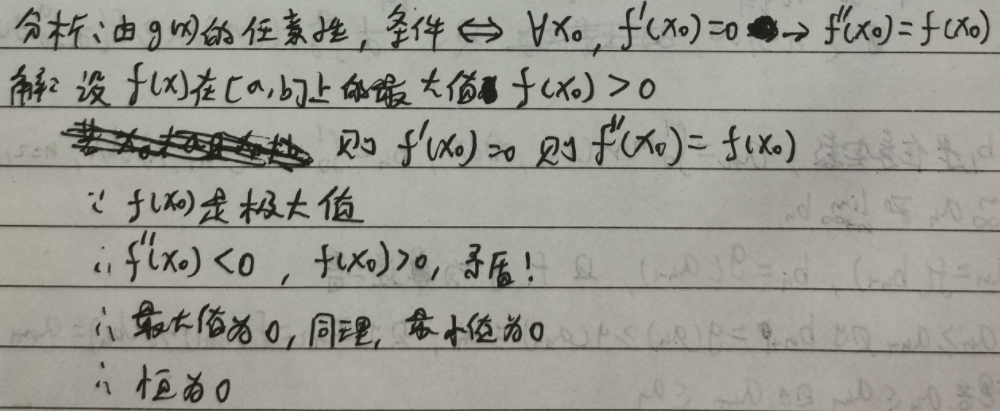 分析：由g(x)的任意性，条件 ⇔ ∀x₀, f'(x₀)=0 → f''(x₀)=f(x₀)
解：设 f(x)在[a,b]上的最大值 f(x₀)>0
则 f'(x₀)=0 则 f''(x₀)=f(x₀)
∵ f(x₀)是极大值
∴ f''(x₀)<0 ，f(x₀)>0，矛盾！
∴ 最大值为0，同理，最小值为0
∴ 恒为0